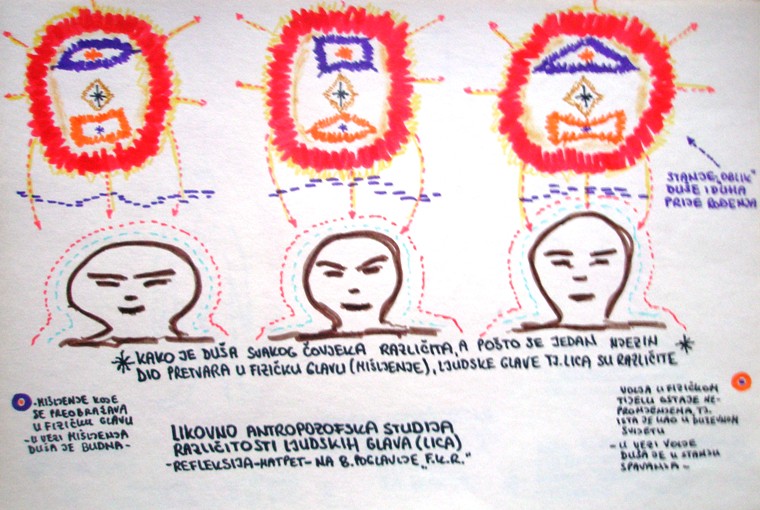 STANJE „OBLIK“
DUŠE I DUHA
PRIJE ROĐENJA
KAKO JE DUŠA SVAKOG ČOVJEKA RAZLIČITA, A POŠTO SE JEDAN NJEZIN
DIO PRETVARA U FIZIČKU GLAVU (MIŠLJENJE), LJUDSKE GLAVE TJ. LICA SU RAZLIČITE
-MIŠLJENJE KOJE
SE PREOBRAŽAVA
U FIZIČKU GLAVU
-U VEZI MIŠLJENJA
DUŠA JE BUDNA-
LIKOVNO ANTROPOZOFSKA STUDIJA
RAZLIČITOSTI LJUDSKIH GLAVA (LICA)
-REFLEKSIJA-NATPET-NA 8. POGLAVLJE „F.K.R.“
VOLJA U FIZIČKOM
TIJELU OSTAJE NE-
PROMJENJENA, TJ.
ISTA JE KAO U DUŠEVNOM
SVIJETU
-U VEZI VOLJE
DUŠA JE U STANJU
SPAVANJA-